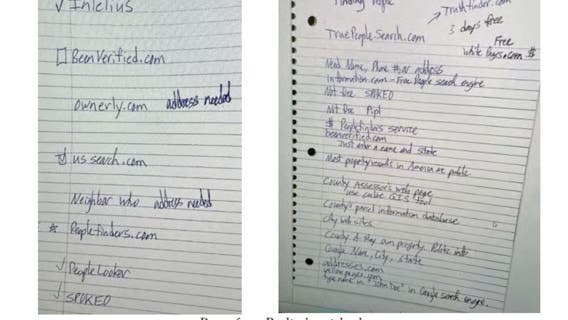 ✓ Intelius
BeenVerified.com
ownerly.com address needed
ussearch.com
Neighbor who address needed
* Peoplefinders.com
✓ PeopleLooker
✓ SPOKEO
Finding People
→ Truthfinder.com
3 days free
TruePeopleSearch.com
Free
White Pages.com $
Need Name, Phone #, or address
information.com - Free People search engine
Not free SPOKEO
Not free Pipl
$ Peoplefinders service
beenverified.com
Just enter a name and state
Most property records in America are public
County Assessor's web page
use online GIS tool
County's parcel information database
City web sites.
County if they own property. Public info
Google Name, City, State
addresses.com
yellowpages.com
type name in "John Doe" in Google search engine.